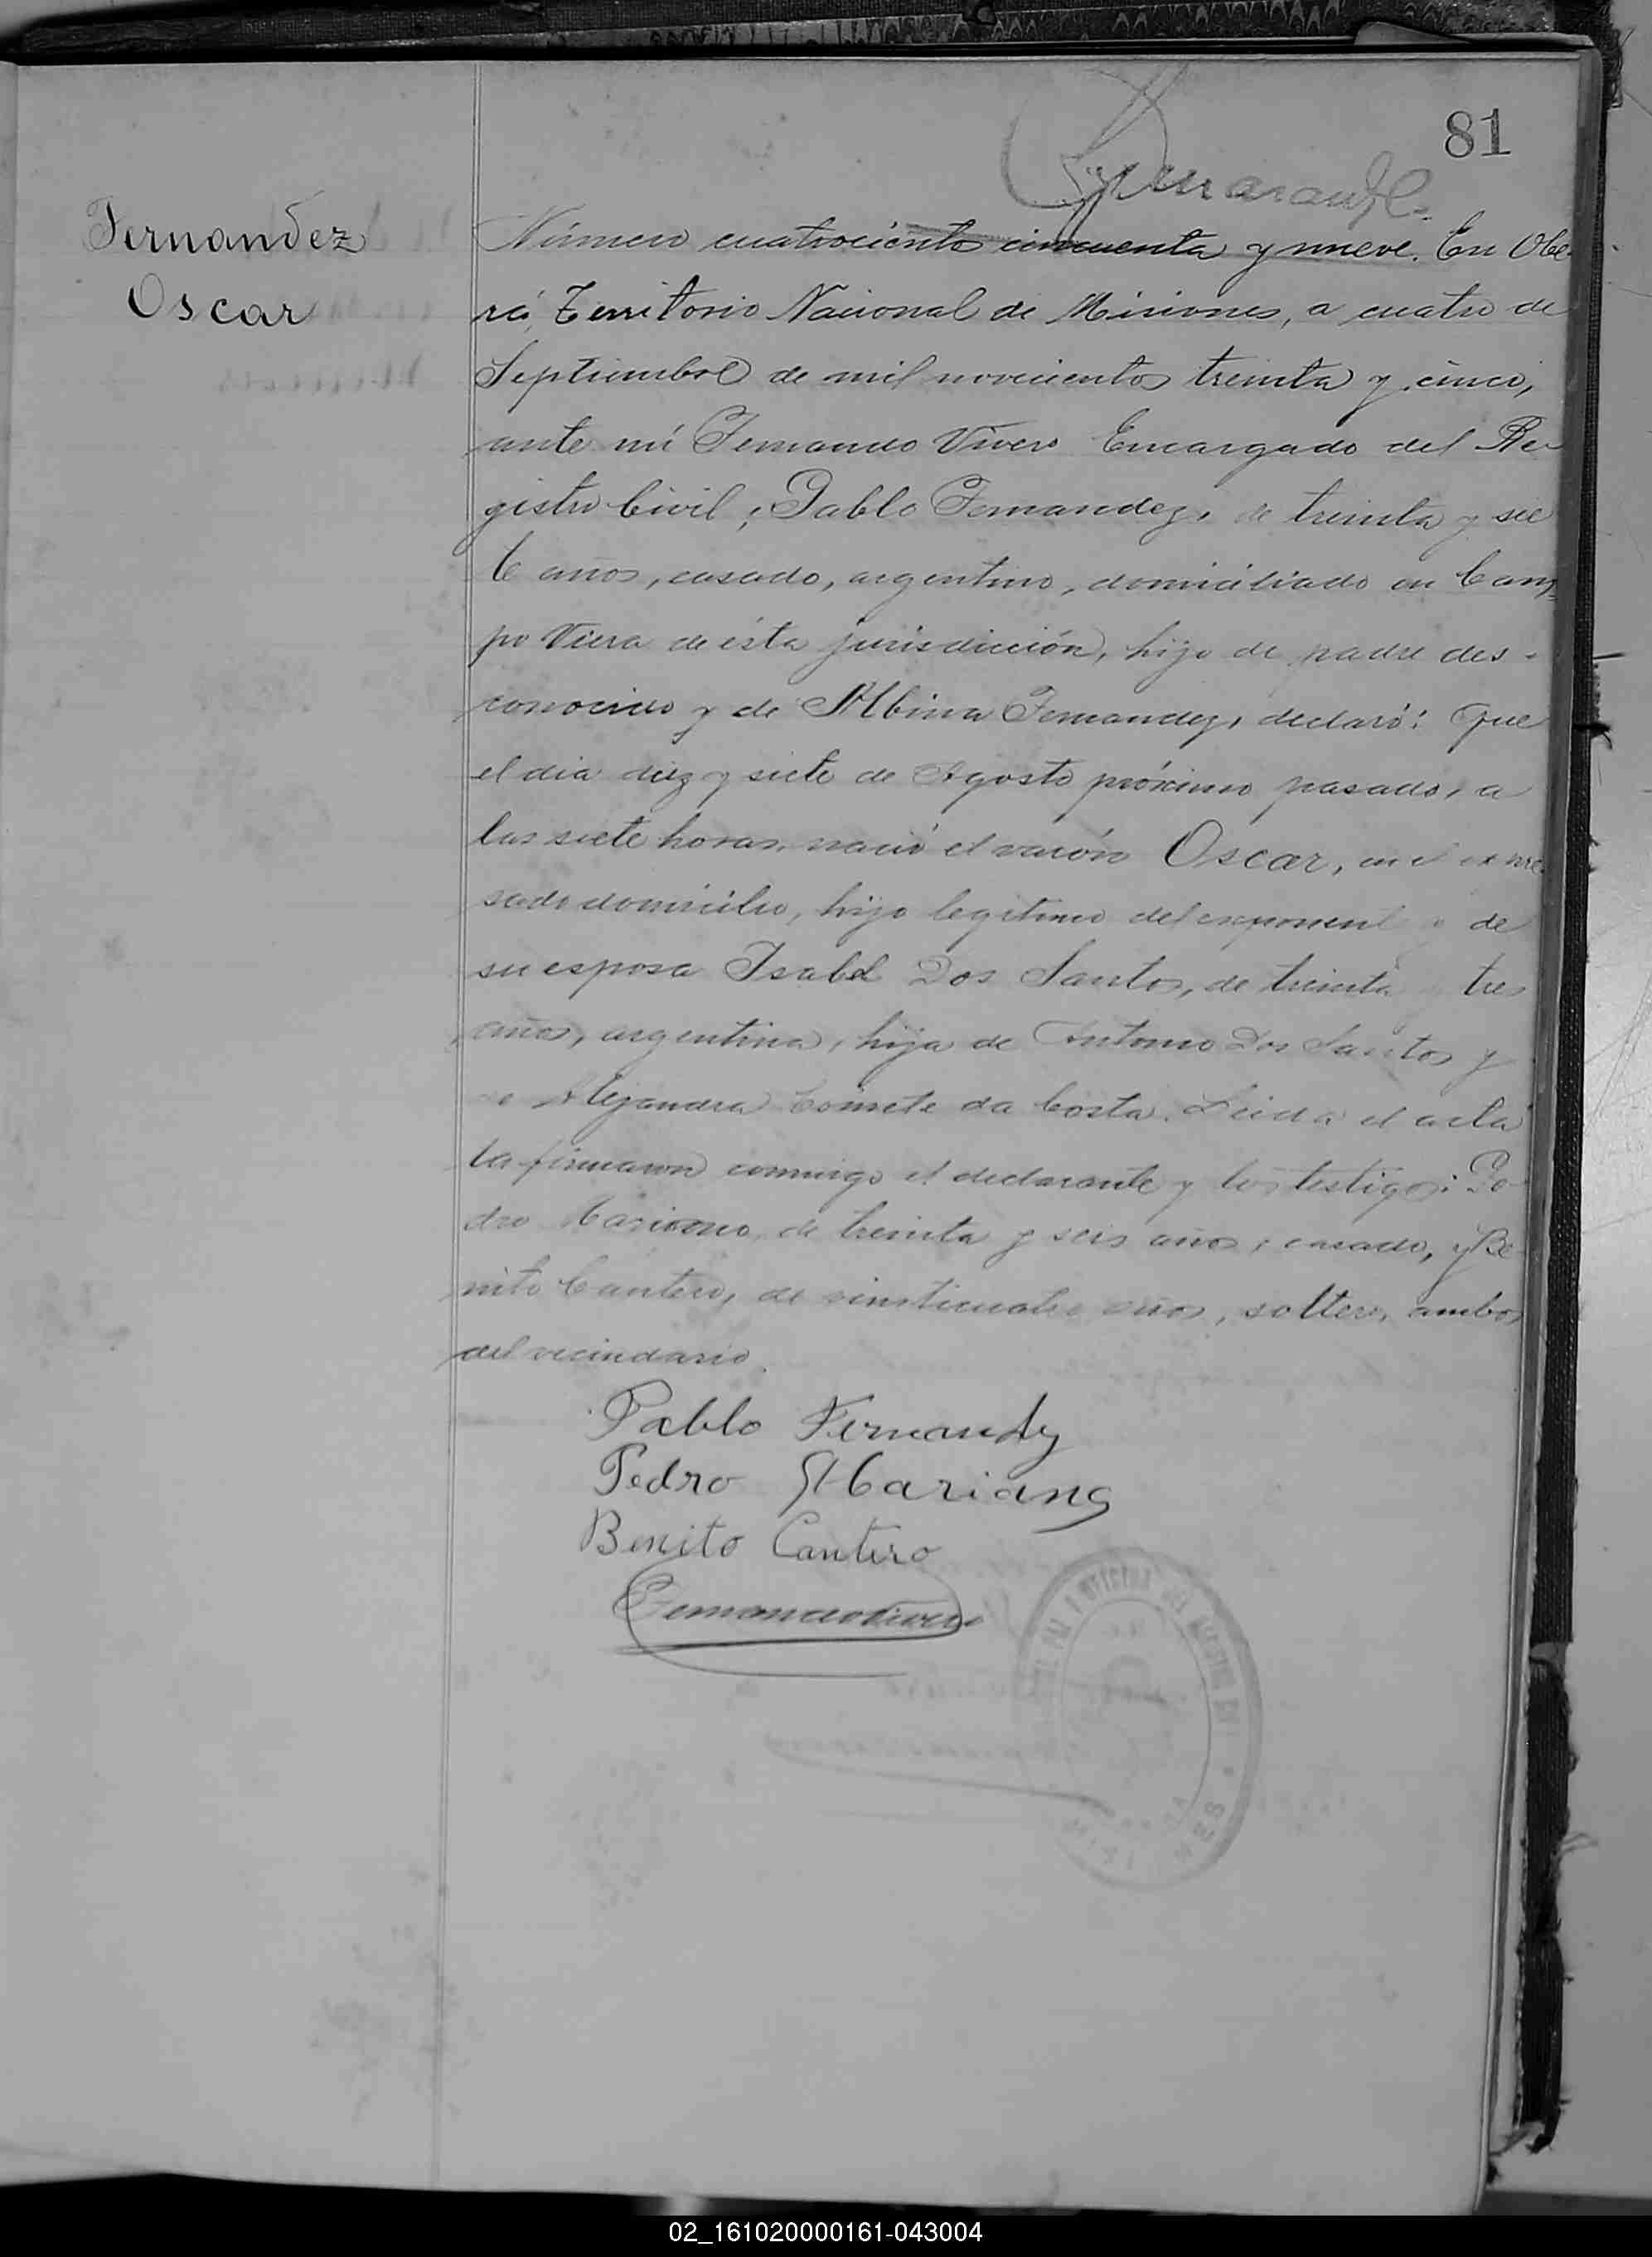 81
Fernandez
Oscar
Número cuatrociento cincuenta y nueve. En Obe-
rá, Territorio Nacional de Misiones, a cuatro de
Septiembre de mil novecientos treinta y cinco,
ante mí Fernando Vivero Encargado del Re-
gistro Civil; Pablo Fernandez, de treinta y sie
te años, casado, argentino, domiciliado en Cam-
po Viera de ésta jurisdicción, hijo de padre des-
conocido y de Albina Fernandez, declaró: Que
el dia diez y siete de Agosto próximo pasado, a
las siete horas, nació el varón Oscar, en el expre-
sado domicilio, hijo legitimo del exponente y de
su esposa Isabel Dos Santos, de treinta y tres
años, argentina, hija de Antonio Dos Santos y
de Alejandra da Costa. Leida el acta
la firmaron conmigo el declarante y los testigos: Pe-
dro Mariano, de treinta y seis años, casado, y Be
nito Cantero, de veinticuatro años, soltero, ambos
del vecindario.
Pablo Fernandez
Pedro Mariano
Benito Cantero
Fernando Vivero
MISIONES
02_161020000161-043004